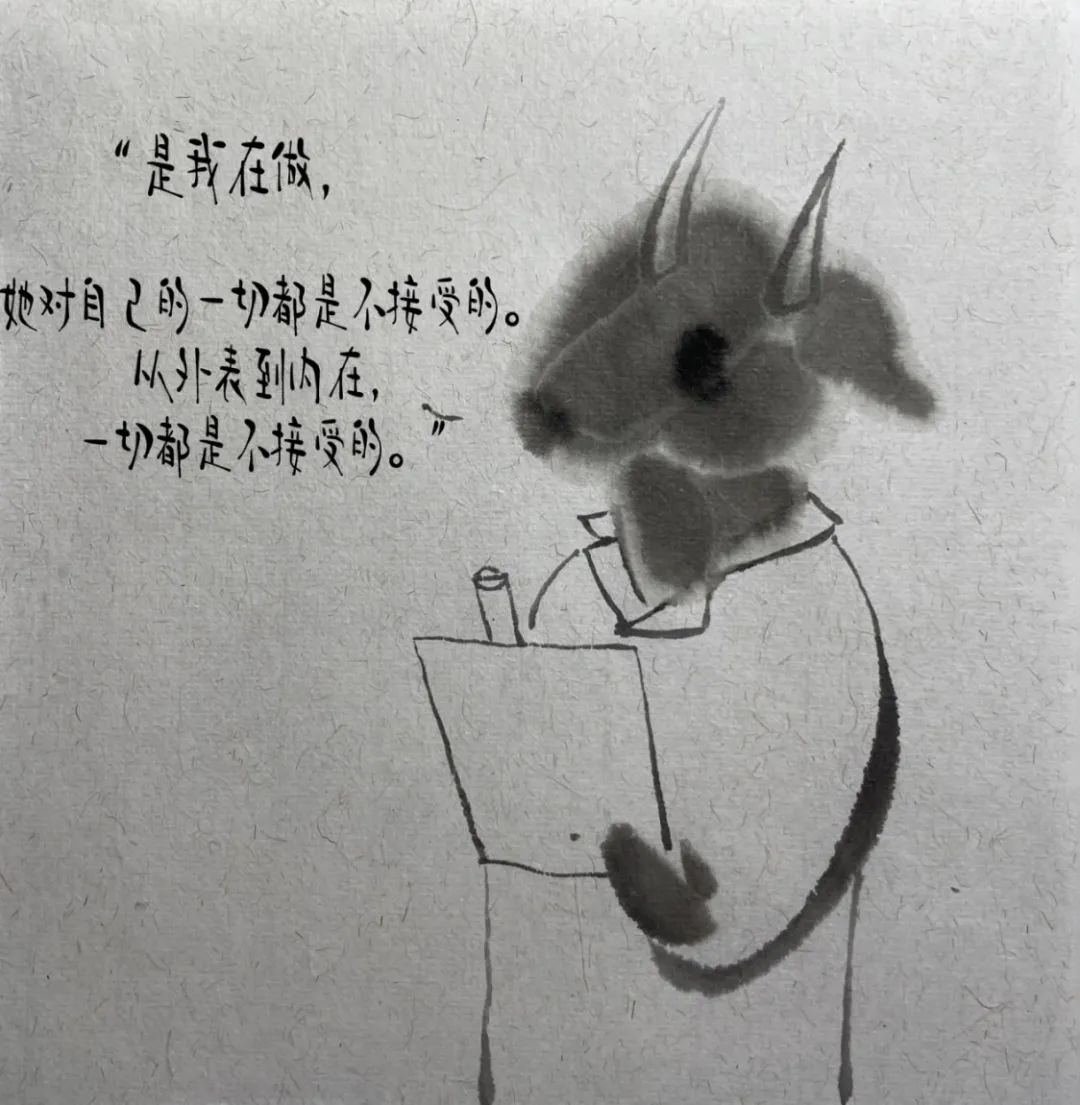 “是我在做，
她对自己的一切都是不接受的。
从外表到内在，
一切都是不接受的。”